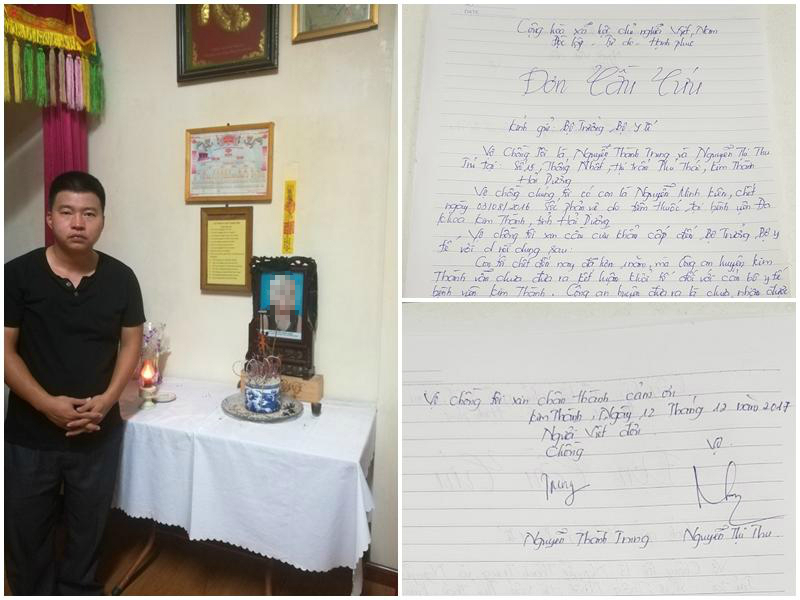 Cộng hòa xã hội chủ nghĩa Việt Nam
Độc lập - Tự do - Hạnh phúc
Đơn Cầu Cứu
Kính gửi: Bộ Trưởng Bộ y tế
Vợ Chồng Tôi là, Nguyễn Thành Trung và Nguyễn Thị Thu
Trú tại: Số 18, Thống Nhất, thị trấn Phú Thái, Kim Thành
Hải Dương
Vợ chồng chúng tôi có con là Nguyễn Minh Kiên, chết
ngày 03/08/2016 Sốc phản vệ do tiêm thuốc, tại bệnh viện Đa
khoa Kim Thành, tỉnh Hải Dương.
Vợ chồng tôi xin cầu cứu khẩn cấp đến Bộ Trưởng Bộ y
tế với nội dung sau:
Con tôi chết đến nay đã hơn năm, mà Công an huyện Kim
Thành vẫn chưa đưa ra kết luận khởi tố đối với cán bộ y tế
bệnh viện Kim Thành. Công an huyện đưa ra là chưa nhận được
Vợ chồng tôi xin chân thành cảm ơn
Kim Thành, Ngày 12 Tháng 12 năm 2017
Người viết đơn
Chồng Vợ
Trung
Nguyễn Thành Trung Nguyễn Thị Thu